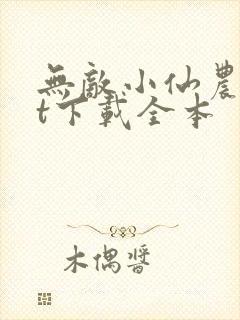 無敵小仙農
t下載全本
木偶醬